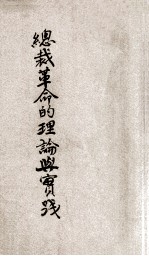 總裁革命的理論與實踐